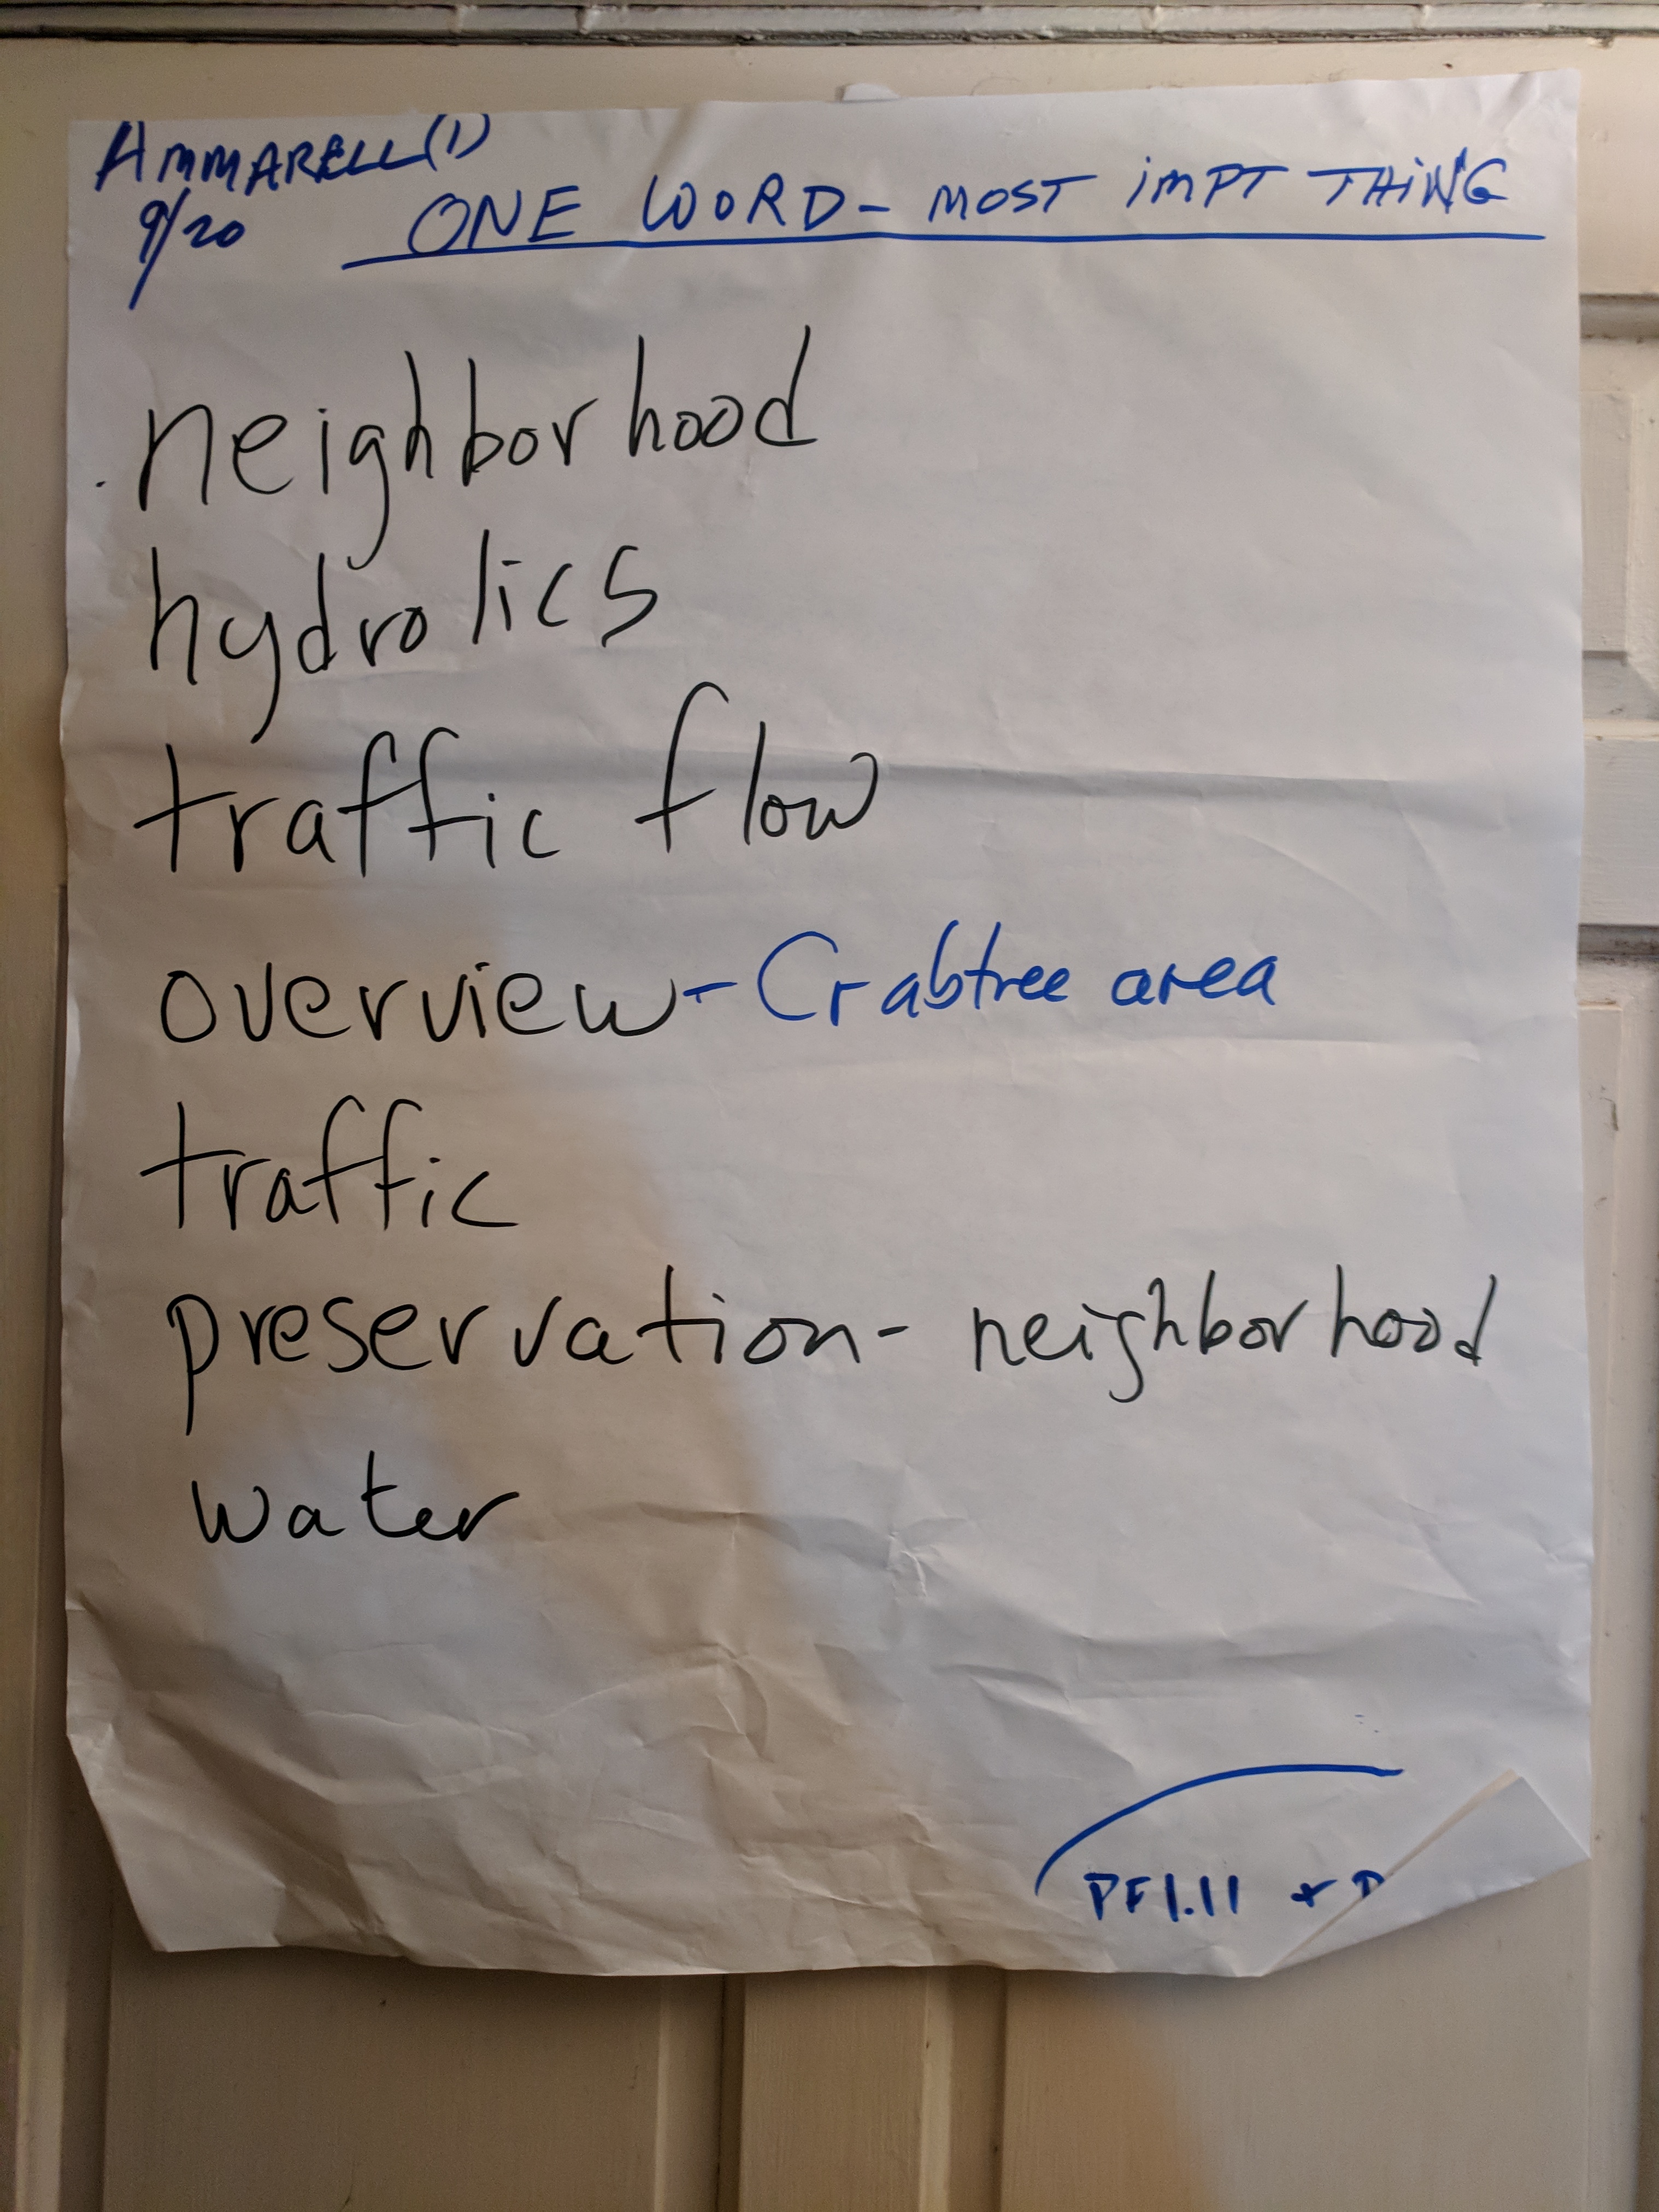 AMMARELL (1)
9/20 ONE WORD - MOST IMPT THING
neighborhood
hydrolics
traffic flow
overview - Crabtree area
traffic
preservation - neighborhood
water
PF1.11 +